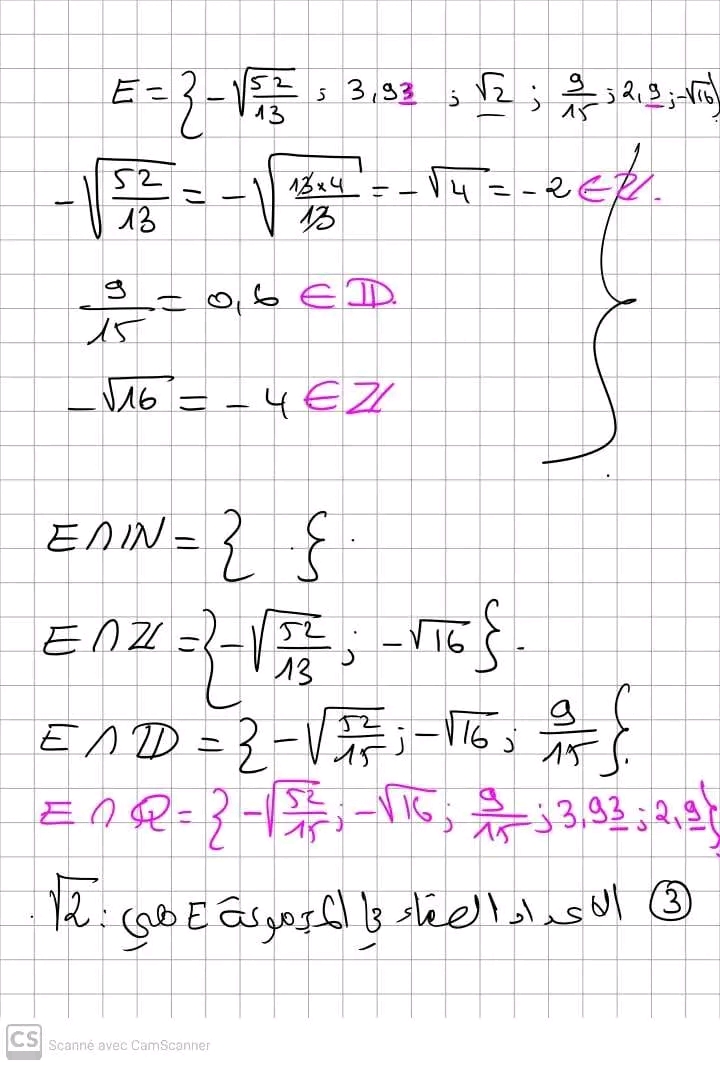 E = { -√(52/13) ; 3,93 ; √2 ; 9/15 ; 2,9 ; -√16 }
-√(52/13) = -√(13×4/13) = -√4 = -2 ∈ ℤ.
9/15 = 0,6 ∈ 𝔻.
-√16 = -4 ∈ ℤ
E ∩ ℕ = { }.
E ∩ ℤ = { -√(52/13) ; -√16 }.
E ∩ 𝔻 = { -√(52/15) ; -√16 ; 9/15 }.
E ∩ ℚ = { -√(52/15) ; -√16 ; 9/15 ; 3,93 ; 2,9 }
③ الأعداد الصماء في المجموعة E هي : √2.
CS Scanné avec CamScanner